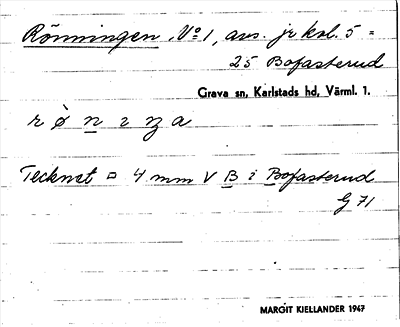 Rönningen, No 1, avs. jr kol. 5 =
25 Bofasterud
Grava sn, Karlstads hd, Värml. 1.
r ò n ı z a
Tecknat □ 4 mm V B i Bofasterud
G 71
MARGIT KIELLANDER 1947